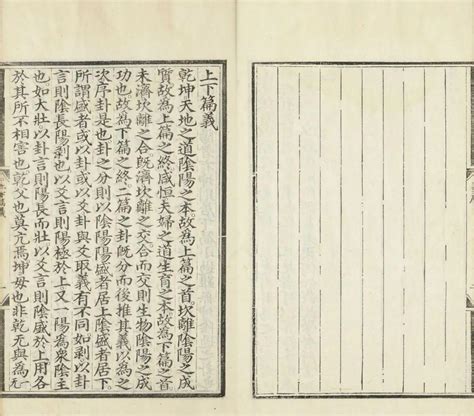 上下篇義
乾坤天地之道陰陽之本故為上篇之首坎離陰陽之成
質故為上篇之終咸恒夫婦之道生育之本故為下篇之首
未濟坎離之合既濟坎離之交合而交則生物陰陽之成
功也故為下篇之終二篇之卦既分而後推其義以為之
次序卦是也卦之分則以陰陽陽盛者居上陰盛者居下
所謂盛者或以卦或以爻卦與爻取義有不同如剝以卦
言則陰長陽剝也以爻言則陽極於上又一陽為衆陰主
也如大壯以卦言則陽長而壯以爻言則陰盛於上用各
於其所不相害也乾父也莫亢焉坤母也非乾无與為